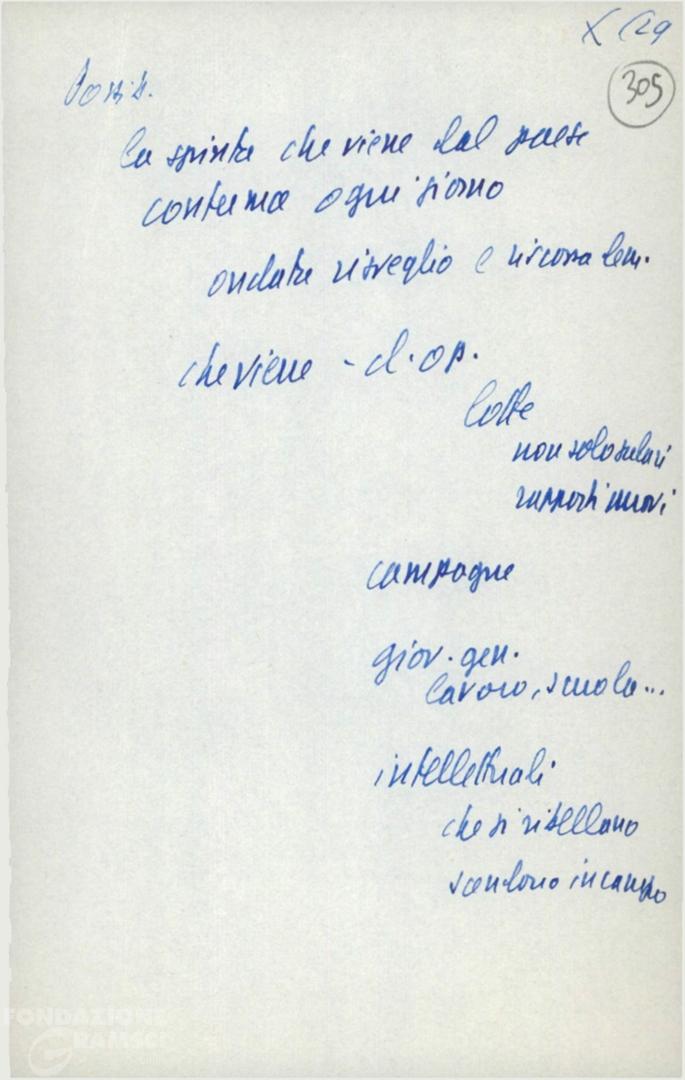 X (29
305
Possib.
la spinta che viene dal paese
conferma ogni giorno
ondata risveglio e riscossa dem.
che viene - cl. op.
lotte
non solo salari
rapporti nuovi
campagne
giov. gen.
lavoro, scuola...
intellettuali
che si ribellano
scendono in campo
FONDAZIONE
GRAMSCI